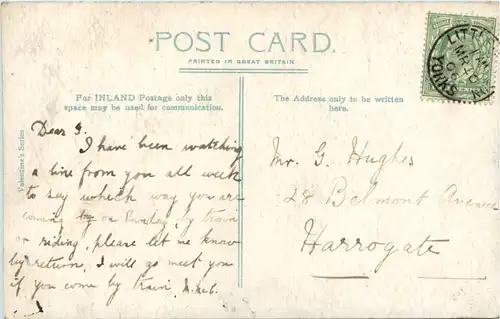 POST CARD.
PRINTED IN GREAT BRITAIN
For INLAND Postage only this
space may be used for communication.
The Address only to be written
here.
Valentine's Series
Dear G.
I have been watching
a line from you all week
to say which way you are
coming by on Sunday, by train
or riding, please let me know
by return, I will go meet you
if you come by train,
Mr. G. Hughes
28 Belmont Avenue
Harrogate
LITTL
YORKS